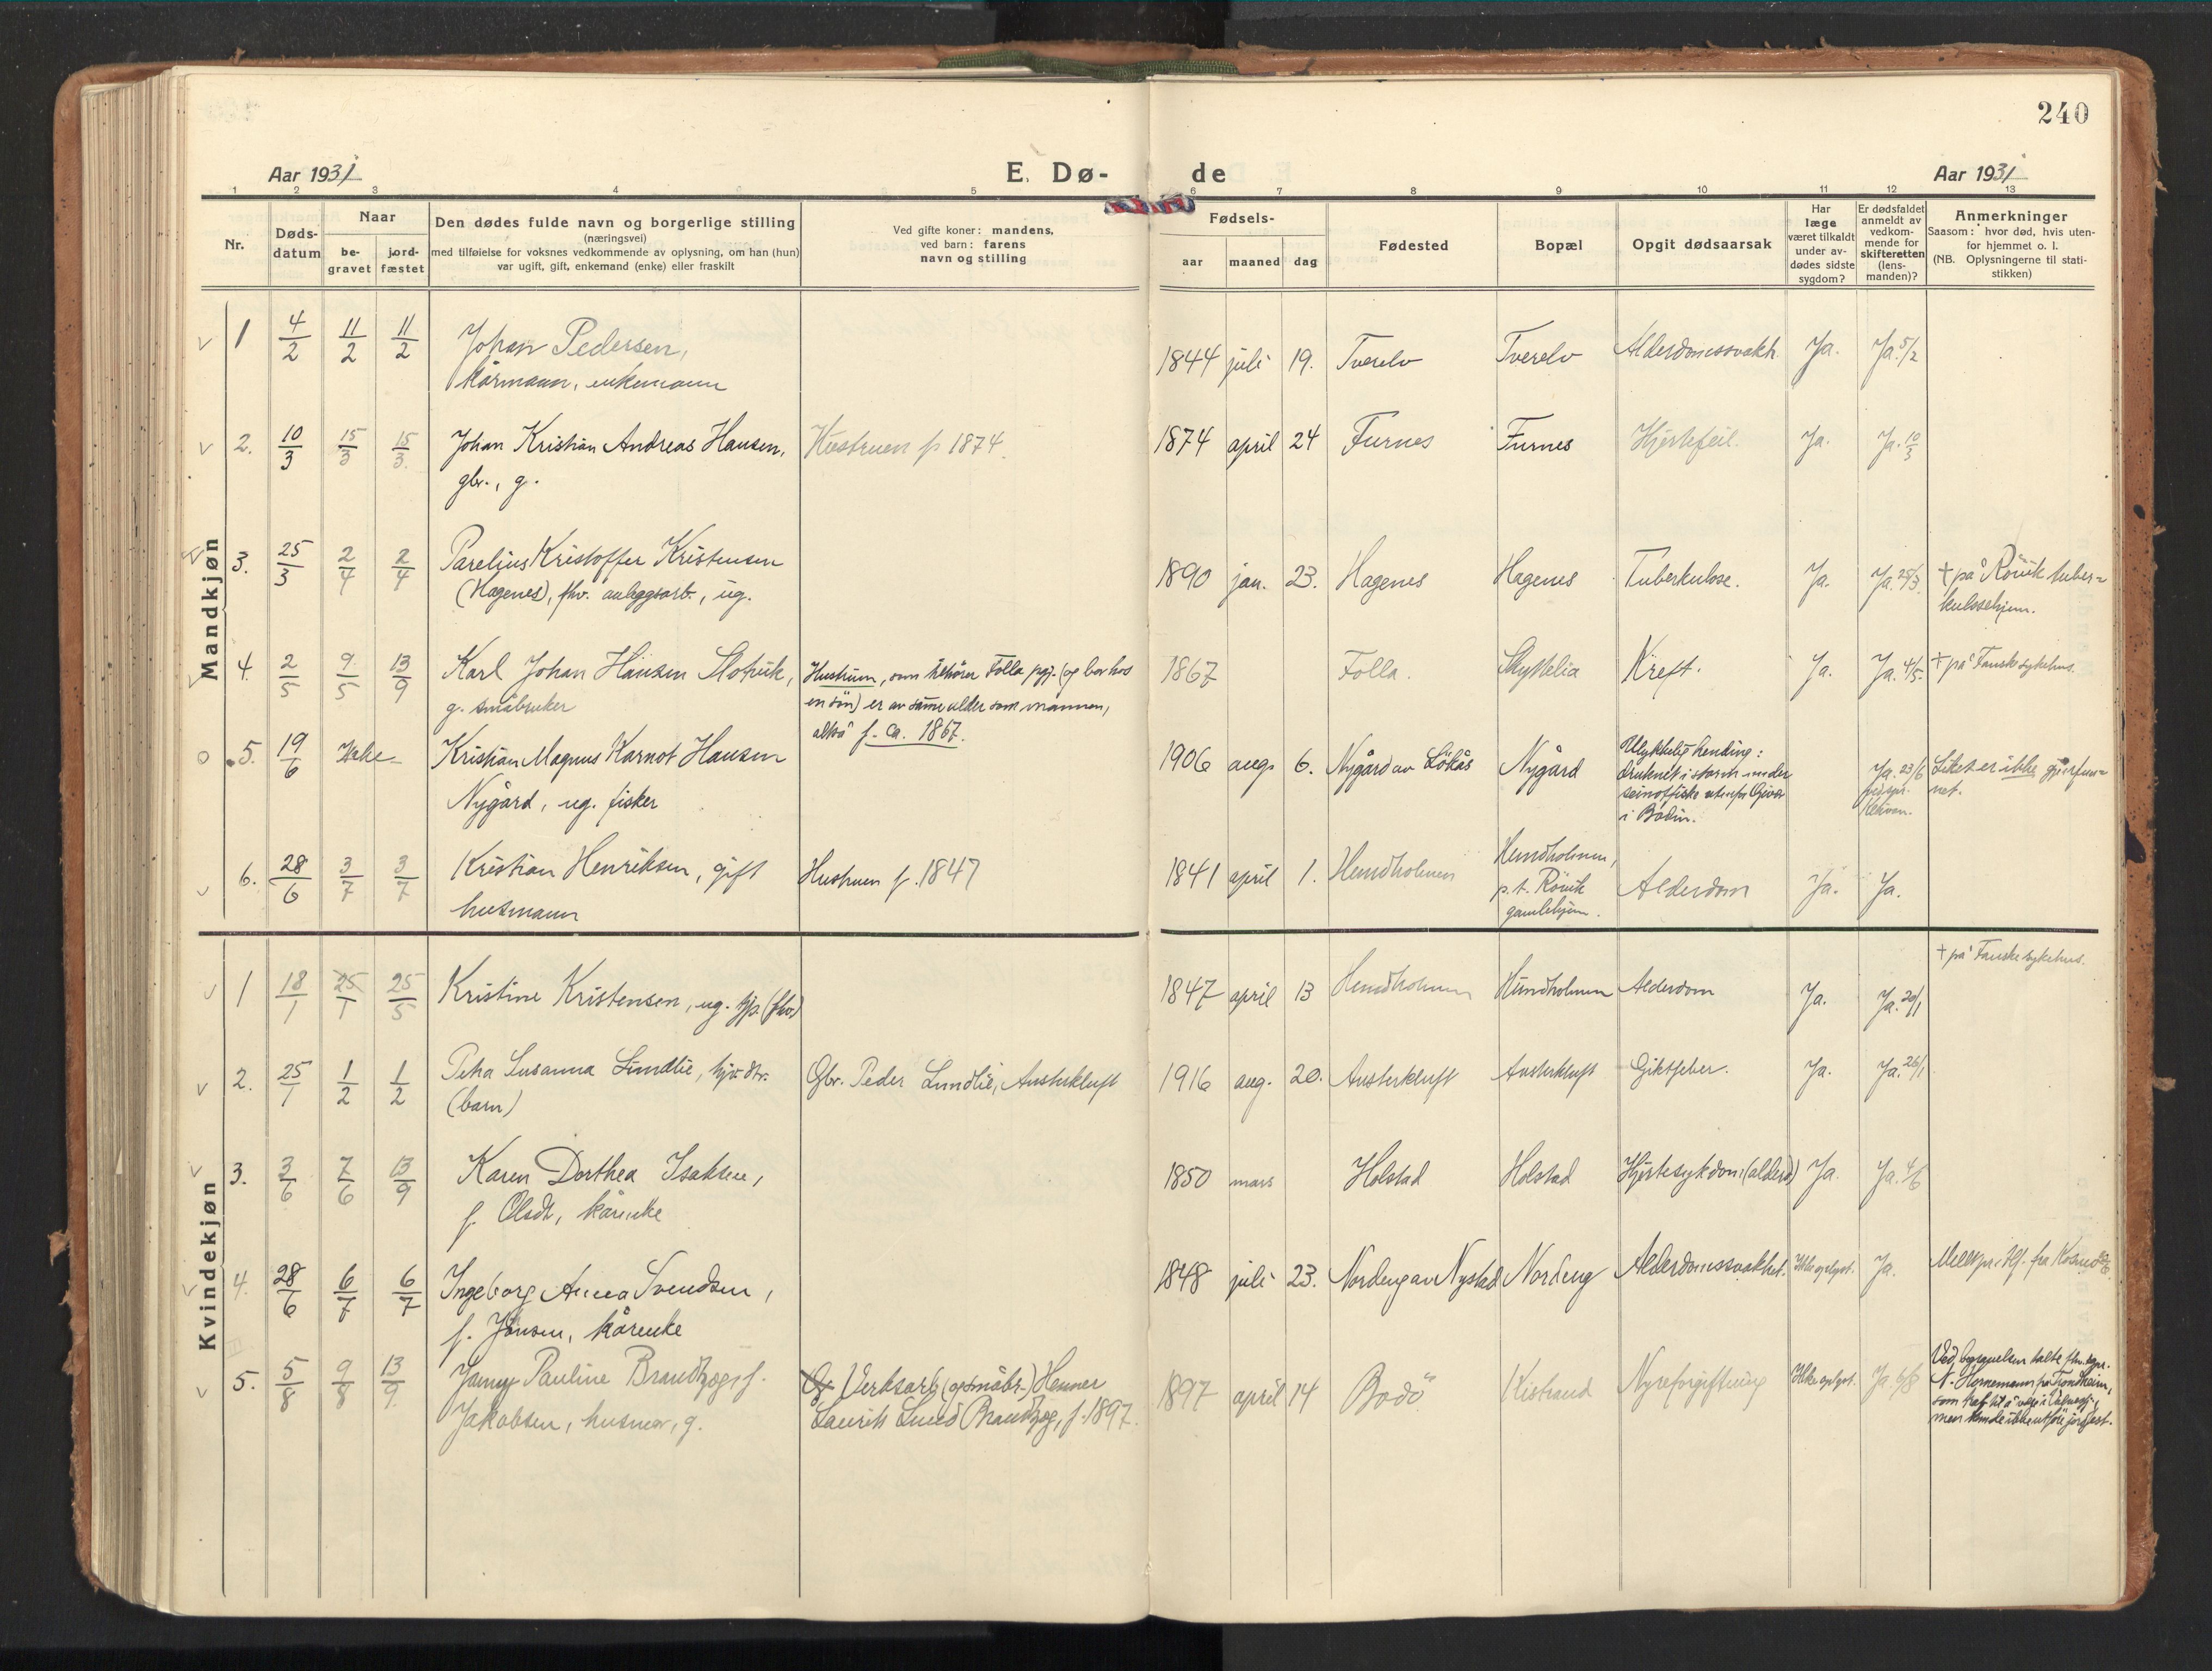 240
Aar 1931
E. Dø-
de
Aar 1931
1 2 3 4 5 6 7 8 9 10 11 12 13
Nr.
Døds-
datum
Naar
be-
gravet
jord-
fæstet
Den dødes fulde navn og borgerlige stilling
(næringsvei)
med tilføielse for voksnes vedkommende av oplysning, om han (hun)
var ugift, gift, enkemand (enke) eller fraskilt
Ved gifte koner: mandens,
ved barn: farens
navn og stilling
Fødsels-
aar maaned dag
Fødested
Bopæl
Opgit dødsaarsak
Har
læge
været tilkaldt
under av-
dødes sidste
sygdom?
Er dødsfaldet
anmeldt av
vedkom-
mende for
skifteretten
(lens-
manden)?
Anmerkninger
Saasom: hvor død, hvis uten-
for hjemmet o. l.
(NB. Oplysningerne til stati-
stikken)
Mandkjøn
1 4/2 11/2 11/2 Johan Pedersen,
kårmann, enkemann
1844 juli 19. Tverelv Tverelv Alderdomssvakh. Ja. Ja. 5/2
2. 10/3 15/3 15/3. Johan Kristian Andreas Hansen,
gbr., g.
Hustruen f. 1874.
1874 april 24 Furnes Furnes Hjertefeil. Ja. Ja. 10/3
3. 25/3 2/4 2/4 Parelius Kristoffer Kristensen
(Hagenes), fhv. anleggsarb., ug.
1890 jan. 23. Hagenes Hagenes Tuberkulose. Ja. Ja. 25/3.
† på Rönvik tuber=
kulosehjem.
4. 2/5 9/5 13/9 Karl Johan Hansen Slotvik,
g. småbruker
Hustruen, som tilhører Folla pgj. (og bor hos
en sön) er av samme alder som mannen,
altså f. ca. 1867.
1867 Folla. Skyttelia Kreft. Ja. Ja. 4/5. † på Fauske sykehus.
5. 19/6 Kristian Magnus Karnot Hansen
Nygård, ug. fisker
1906 aug. 6. Nygård av Lökås Nygård
Ulykkelig hending:
druknet i storm under
seinotfiske utenfor
i Bodin.
Ja. 23/6
Liket er ikke gjenfun=
net.
6. 28/6 3/7 3/7 Kristian Henriksen, gift
husmann
Hustruen f. 1847
1841 april 1. Hundholmen
Hundholmen,
p.t. Rönvik
gamlehjem.
Alderdom Ja. Ja.
Kvindekjøn
1 18/1 25/1 25/5 Kristine Kristensen, ug. hjp. (fhv.)
1847 april 13 Hundholmen Hundholmen Alderdom Ja. Ja. 20/1
† på Fauske sykehus.
2. 25/1 1/2 1/2 Petra Susanna Lundlie, hjv. dtr.
(barn)
Gbr. Peder Lundlie, Austerkluft
1916 aug. 20. Austerkluft Austerkluft Giktfeber. Ja. Ja. 26/1
3. 3/6 7/6 13/9 Karen Dorthea Isaksen,
f. Olsdt., kårenke
1850 mars Holstad Holstad Hjertesykdom (alderd) Ja. Ja. 4/6
4. 28/6 6/7 6/7 Ingeborg Anna Svendsen,
f. Jönsen, kårenke
1848 juli 23. Nordeng av Nystad Nordeng Alderdomssvakhet. Ikke oplyst. Ja.
5. 5/8 9/8 13/9. Jenny Pauline Brandtzæg f.
Jakobsen, husmor, g.
Verksarb. (og småbr.) Henner
Laurits Brandtzæg, f. 1897.
1897 april 14 Bodö Kistrand Nyreforgiftning Ikke oplyst. Ja 6/8
Ved begravelsen talte fhv. sgpr.
N. Hornemann fra Trondheim,
men kunde ikke utföre jordfest.